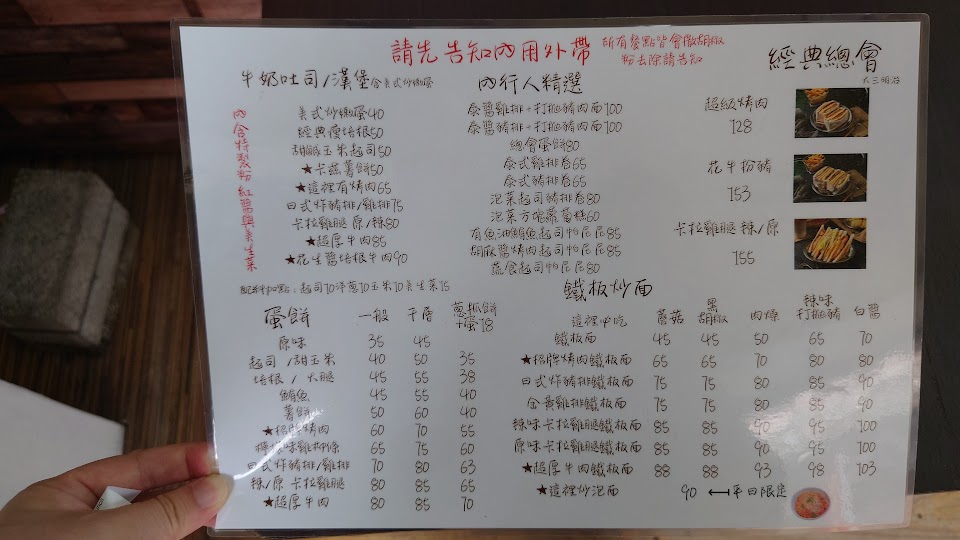 請先告知內用外帶
所有餐點皆會撒胡椒
粉去除請告知
經典總會
牛奶吐司/漢堡 含美式炒嫩蛋
內含特製粉紅醬與美生菜
美式炒嫩蛋40
經典燻培根50
甜鹹玉米起司50
★卡滋薯餅50
★這裡有烤肉65
日式炸豬排/雞排75
卡拉雞腿 原/辣80
★超厚牛肉85
★花生醬培根牛肉90
起司10洋蔥10玉米10美生菜15
內行人精選
泰醬雞排+打拋豬肉面100
泰醬豬排+打拋豬肉面100
總會蛋餅80
泰式雞排卷65
泰式豬排卷65
泡菜起司豬排卷80
泡菜方塊蘿蔔糕60
有魚油鮪魚起司帕尼尼85
胡麻醬烤肉起司帕尼尼85
蔬食起司帕尼尼80
超級烤肉
128
花牛扮豬
153
卡拉雞腿 辣/原
155
蛋餅 一般 千層 蔥抓餅
+蛋18
原味 35 45
起司/甜玉米 40 50 35
培根/火腿 45 55 38
鮪魚 45 55 40
薯餅 50 60 40
★招牌烤肉 60 70 55
65 75 60
日式炸豬排/雞排 70 80 63
辣/原 卡拉雞腿 80 85 65
★超厚牛肉 80 85 70
鐵板炒面
這裡必吃 蘑菇 黑胡椒 肉燥 辣味打拋豬 白醬
鐵板面 45 45 50 65 70
★招牌烤肉鐵板面 65 65 70 80 80
日式炸豬排鐵板面 75 75 80 85 90
金黃雞排鐵板面 75 75 80 85 90
辣味卡拉雞腿鐵板面 85 85 90 95 100
原味卡拉雞腿鐵板面 85 85 90 95 100
★超厚牛肉鐵板面 88 88 93 98 103
★這裡炒泡面 90 ←平日限定